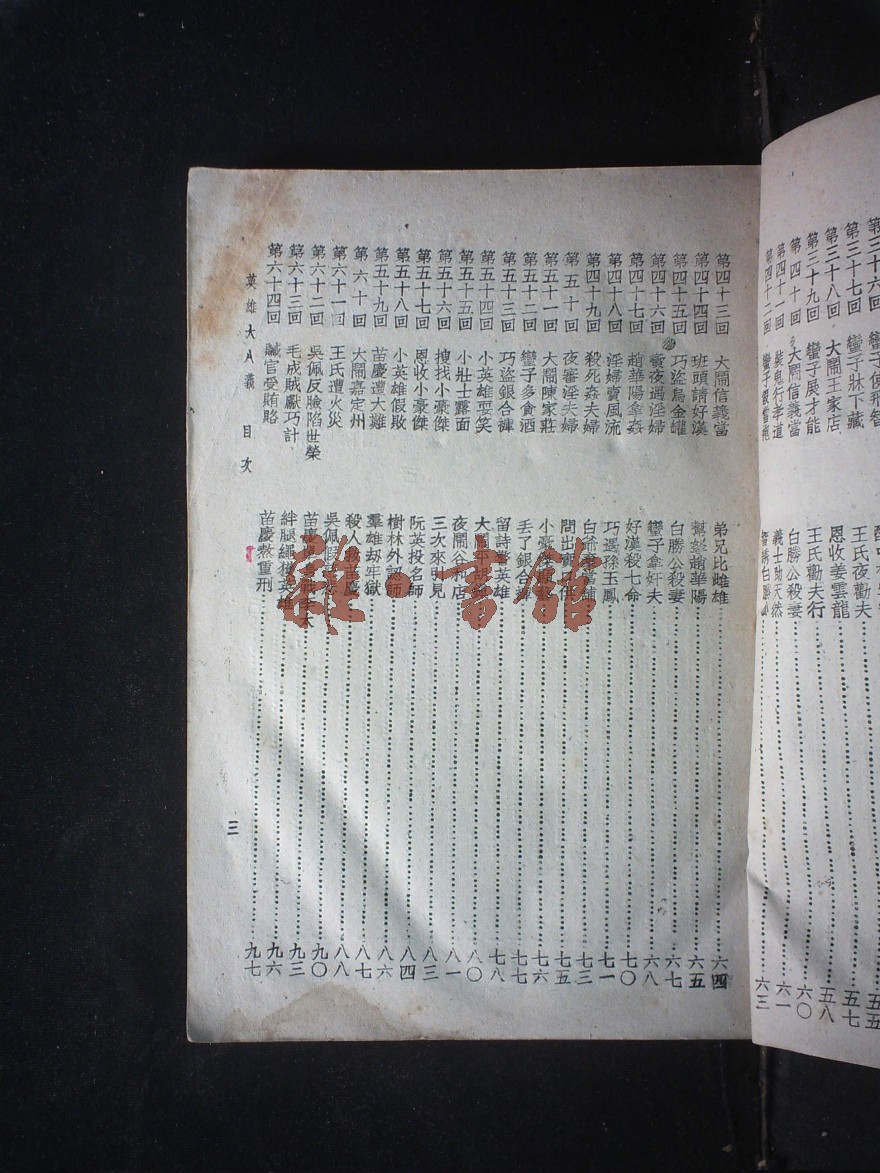 第三十六回 蠻子使飛智
第三十七回 蠻子牀下藏 五五
第三十八回 大鬧王家店 王氏夜勸夫 五七
第三十九回 蠻子展才能 恩收姜雲龍 五八
第四十回 大鬧信義當 王氏勸夫行 六〇
第四十一回 裝鬼行孝道 白勝公殺妻 六一
第四十二回 義士助天然 六三
第四十三回 大鬧信義當 弟兄比雌雄 六四
第四十四回 班頭請好漢 幫拿趙華陽 六五
第四十五回 巧盜烏金罐 白勝公殺妻 六七
第四十六回 黃夜遇淫婦 蠻子拿奸夫 六八
第四十七回 趙華陽拿姦 好漢殺七命 七〇
第四十八回 淫婦賣風流 巧遇孫玉鳳 七一
第四十九回 殺死姦夫婦 白爺 七三
第五十回 夜審淫夫婦 問出實口供 七五
第五十一回 大鬧陳家莊 小豪傑 七六
第五十二回 蠻子多食酒 丢了銀合褲 七七
第五十三回 巧盜銀合褲 留詩驚英雄 七八
第五十四回 小英雄耍笑 大鬧平 八〇
第五十五回 小壯士露面 夜鬧谷和店 八一
第五十六回 搜找小豪傑 三次來明見 八三
第五十七回 恩收小豪傑 阮英投名師 八四
第五十八回 小英雄假敗 樹林外認師 八六
第五十九回 苗慶遭大難 羣雄劫牢獄 八七
第六十回 大鬧嘉定州 殺人救苗慶 八八
第六十一回 王氏遭火災 吳佩假 九〇
第六十二回 吳佩反臉陷世榮 苗慶 九三
第六十三回 毛成賊獻巧計 絆腿繩獲英雄 九六
第六十四回 贓官受賄賂 苗慶熬重刑 九七
英雄大八義 目次 三
雜·書館